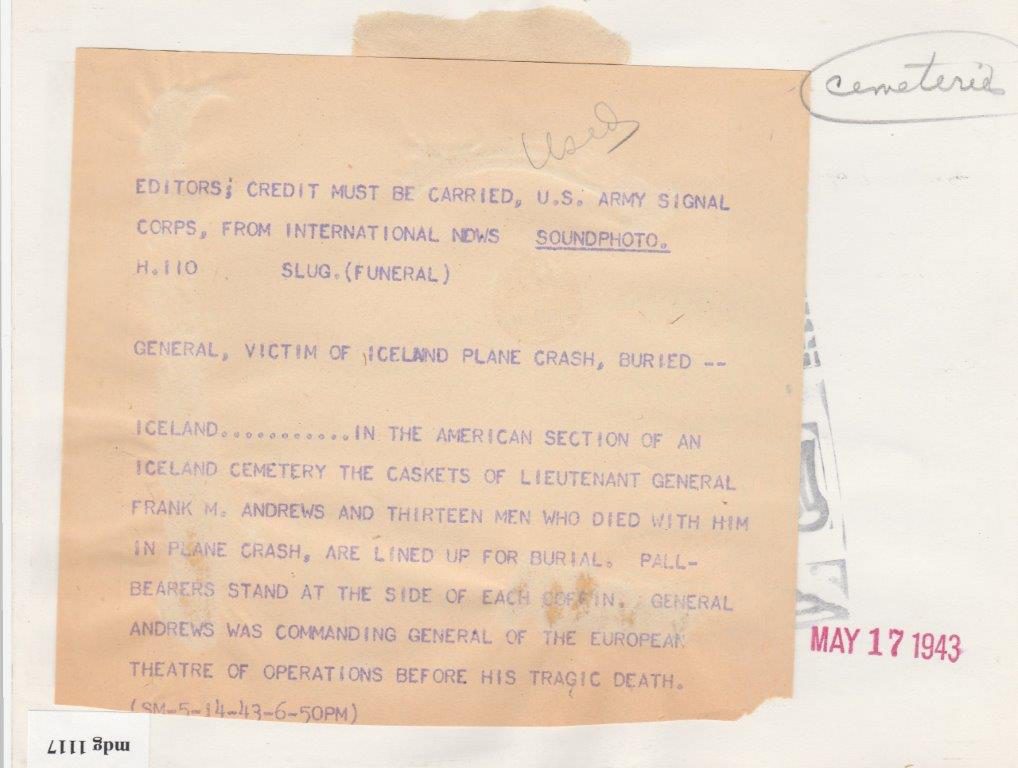 cemeteries
used
EDITORS; CREDIT MUST BE CARRIED, U.S. ARMY SIGNAL
CORPS, FROM INTERNATIONAL NDWS SOUNDPHOTO.
H.110 SLUG.(FUNERAL)
GENERAL, VICTIM OF ICELAND PLANE CRASH, BURIED --
ICELAND...........IN THE AMERICAN SECTION OF AN
ICELAND CEMETERY THE CASKETS OF LIEUTENANT GENERAL
FRANK M. ANDREWS AND THIRTEEN MEN WHO DIED WITH HIM
IN PLANE CRASH, ARE LINED UP FOR BURIAL. PALL-
BEARERS STAND AT THE SIDE OF EACH COFFIN. GENERAL
ANDREWS WAS COMMANDING GENERAL OF THE EUROPEAN
THEATRE OF OPERATIONS BEFORE HIS TRAGIC DEATH.
(SM-5-14-43-6-50PM)
MAY 17 1943
mdg 1117